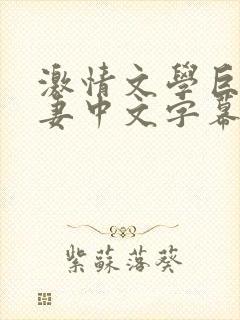 激情文學巨
妻中文字幕
紫蘇落葵